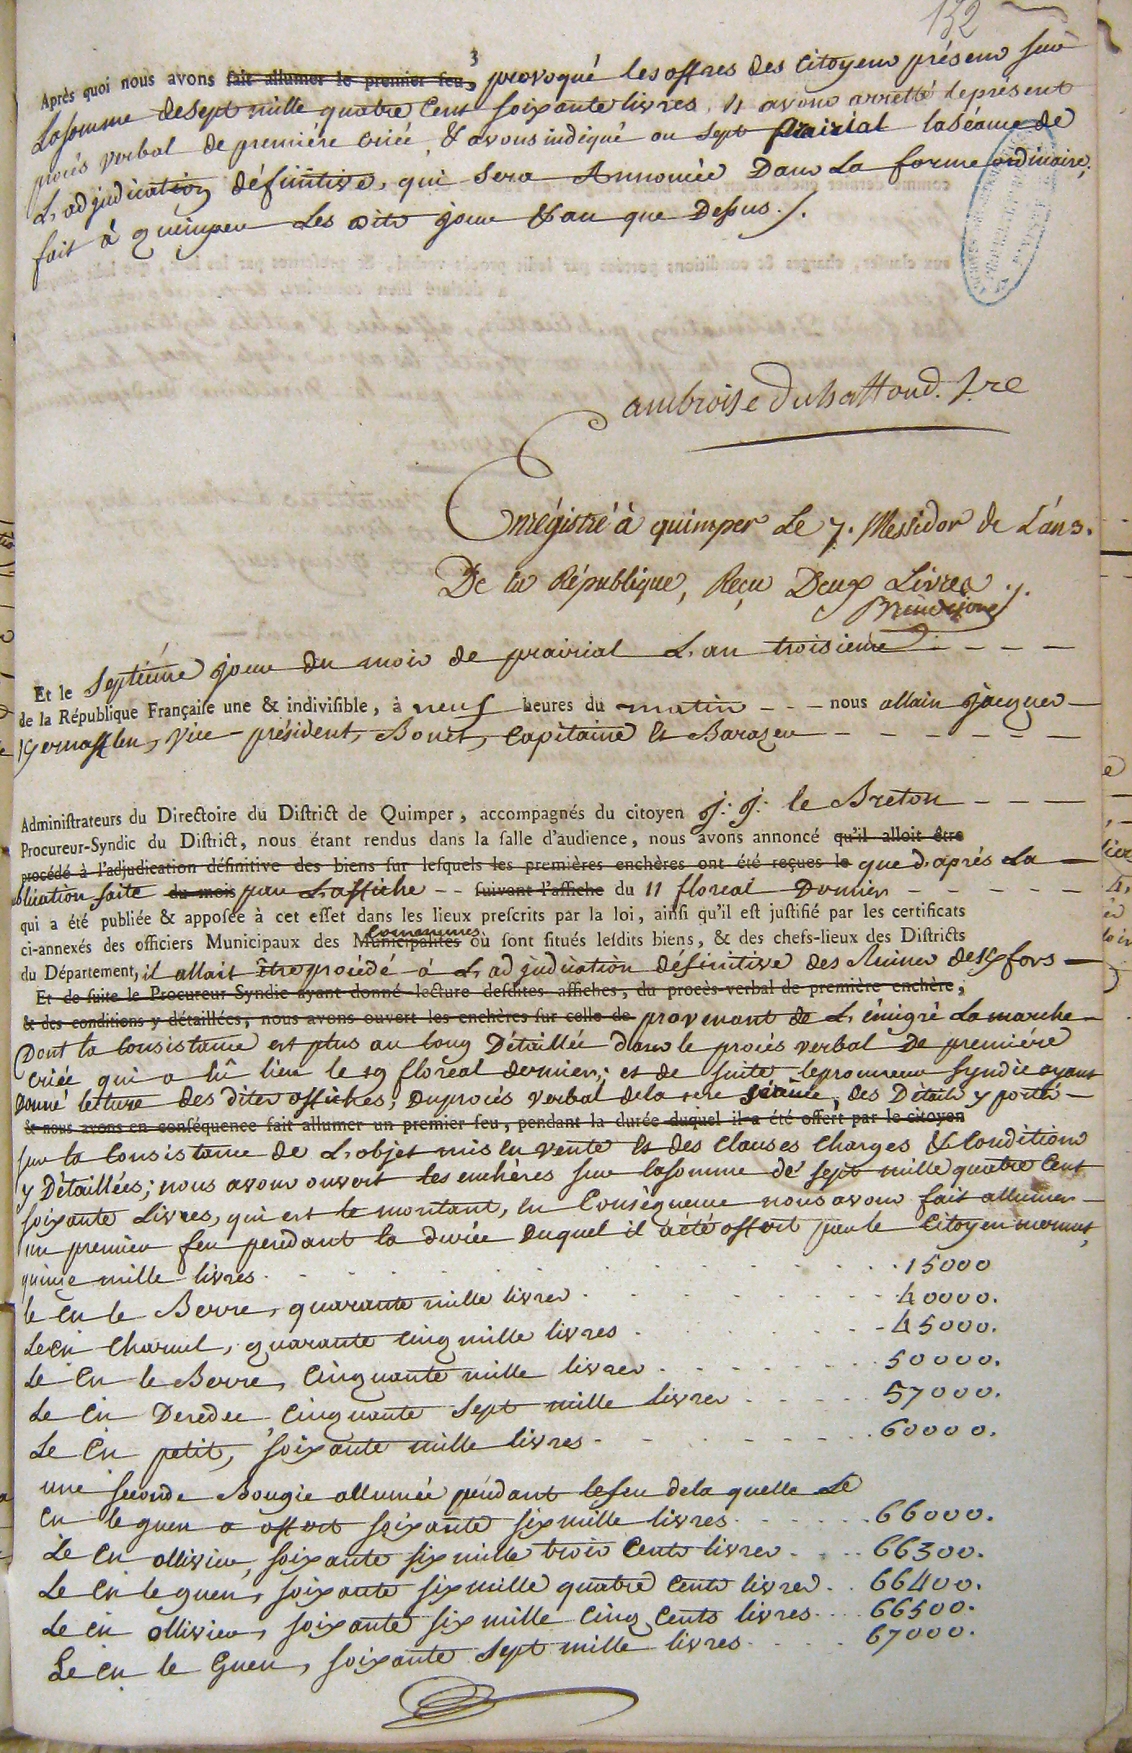 132
3
Après quoi nous avons fait allumer le premier feu, provoqué les offres des Citoyens présens sur
Lasomme desept mille quatre Cent soixante livres, & avons arretté leprésent
procés verbal de premiére criée, & avons indiqué au sept prairial laséance de
L'adjudication définitive, qui sera Annoncée Dans La forme ordinaire,
fait à quimper Les dits jour & an que Dessus ./.
ambroise duhaffond. Sre
Enrégistré à quimper Le 7. Messidor de L'an 3.
De la République, Reçu Deux Livres ./.
Et le septiéme jour du mois de prairial L'an troisieme
de la République Française une & indivisible, à neuf heures du matin - - - nous allain jacques
Kernafflen, Vice-président, Bonet, Capitaine & Barazer
Administrateurs du Directoire du District de Quimper, accompagnés du citoyen J: J: le Breton
Procureur-Syndic du District, nous étant rendus dans la salle d'audience, nous avons annoncé qu'il alloit être
procédé à l'adjudication définitive des biens sur lesquels les premières enchères ont été reçues le que d'aprés La
blication faite du mois par L'affiche - - suivant l'affiche du 11 floreal Dernier
qui a été publiée & apposée à cet effet dans les lieux prescrits par la loi, ainsi qu'il est justifié par les certificats
Communes
ci-annexés des officiers Municipaux des Municipalités où sont situés lesdits biens, & des chefs-lieux des Districts
du Département, il allait être procédé à L'adjudication définitive des Ruines desix fors
Et de suite le Procureur-Syndic ayant donné lecture desdites affiches, du procès-verbal de première enchère,
& des conditions y détaillées, nous avons ouvert les enchères sur celle de provenant de L'émigré Lamarche
Dont la Consistance est plus au long Détaillée dans le procés verbal de premiére
criée qui a eû lieu le 19 floréal dernier; et de suite leprocureur syndic ayant
Donné lecture des dites affiches, Duprocés verbal dela 1ere séance, des Détails y portés
& nous avons en conséquence fait allumer un premier feu, pendant la durée duquel il a été offert par le citoyen
sur la Consistance de L'objet mis en vente & des Clauses Charges & Conditions
y Détaillées; nous avons ouvert les enchères sur lasomme de sept mille quatre Cent
soixante Livres, qui est le montant, en Conséquence nous avons fait allumer
un premier feu pendant la durée Duquel il a été offert par le Citoyen mermet,
quinze mille livres. 15000
le Cn le Berre, quarante mille livres 40000.
Le Cn Charuel, quarante Cinq mille livres 45000.
Le Cn le Berre, Cinquante mille livres 50000.
Le Cn Deredec Cinquante sept mille livres 57000.
Le Cn petit, soixante mille livres 60000.
une seconde Bougie allumée péndant lefeu dela quelle Le
Cn le guen a offert soixante six mille livres 66000.
Le Cn ollivier, soixante six mille trois Cents livres 66300.
Le Cn le guen, soixante six mille quatre Cents livres 66400.
Le Cn ollivier, soixante six mille Cinq Cents livres 66500.
Le Cn le Guen, soixante sept mille livres 67000.